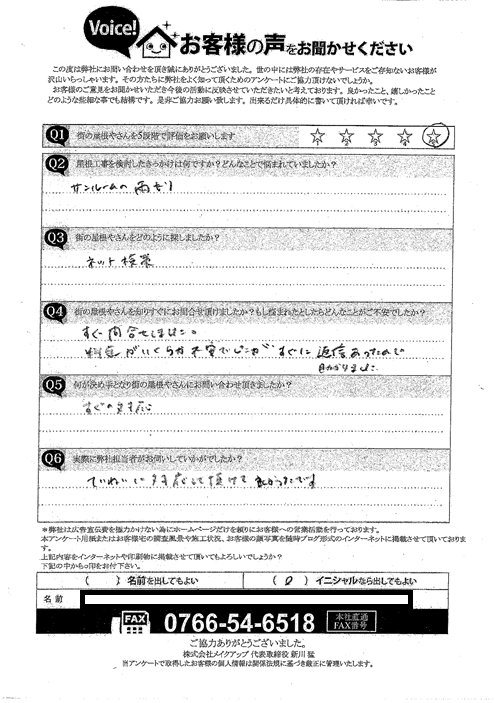 Voice!
お客様の声をお聞かせください
この度は弊社にお問い合わせを頂き誠にありがとうございました。世の中には弊社の存在やサービスをご存知ないお客様が
沢山いらっしゃいます。その方たちに弊社をよく知って頂くためのアンケートにご協力頂けないでしょうか。
お客様のご意見をお聞かせいただき今後の活動に反映させていただきたいと考えております。良かったこと、嬉しかったこと
どのような些細な事でも結構です。是非ご協力お願い致します。出来るだけ具体的に書いて頂ければ幸いです。
Q1 街の屋根やさんを5段階で評価をお願いします
Q2 屋根工事を検討したきっかけは何ですか？どんなことで悩まれていましたか？
サンルームの雨もり
Q3 街の屋根やさんをどのように探しましたか？
ネット検索
Q4 街の屋根やさんを知りすぐにお問合せ頂けましたか？もし悩まれたとしたらどんなことがご不安でしたか？
すぐ問合せしました。
料金がいくらか不安でしたが すぐに返信あったので
助かりました
Q5 何が決め手となり街の屋根やさんにお問い合わせ頂きましたか？
すぐの対応
Q6 実際に弊社担当者がお伺いしていかがでしたか？
ていねいに対応して頂けて
＊弊社は広告宣伝費を極力かけない為にホームページだけを頼りにお客様への営業活動を行っております。
本アンケート用紙またはお客様宅の調査風景や施工状況、お客様の顔写真を随時ブログ形式のインターネットに掲載させて頂いております。
上記内容をインターネットや印刷物に掲載させて頂いてもよろしいでしょうか？
下記の中から○印をお付下さい。
( ) 名前を出してもよい ( 0 ) イニシャルなら出してもよい
名前
FAX 0766-54-6518 本社直通 FAX番号
ご協力ありがとうございました。
株式会社メイクアップ 代表取締役 新川 猛
当アンケートで取得したお客様の個人情報は関係法規に基づき厳正に管理いたします。